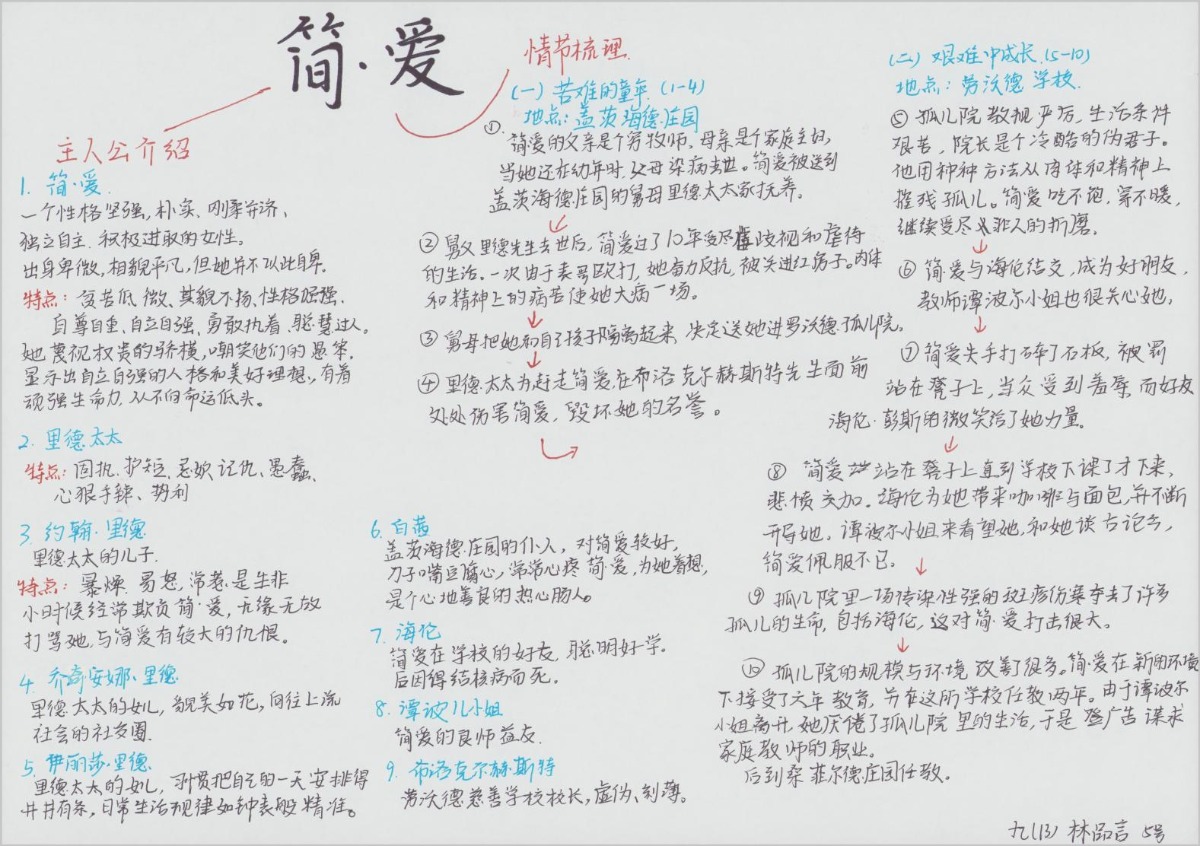 简·爱
主人公介绍
1. 简·爱.
一个性格坚强,朴实、刚柔并济、
独立自主.积极进取的女性。
出身卑微,相貌平凡,但她并不以此自卑.
特点:贫苦低微、其貌不扬、性格倔强、
自尊自重、自立自强、勇敢执着、聪慧过人。
她蔑视权贵的骄横,嘲笑他们的愚笨.
显示出自立自强的人格和美好理想,有着
顽强生命力,从不向命运低头。
2. 里德太太
特点:固执、护短、忌妒、记仇、愚蠢、
心狠手辣、势利
3. 约翰·里德
里德太太的儿子.
特点:暴燥、易怒,常惹是生非
小时候经常欺负简·爱,无缘无故
打骂她,与简爱有较大的仇恨。
4. 乔奇安娜·里德
里德太太的女儿,貌美如花,向往上流
社会的社交圈.
5. 伊丽莎·里德
里德太太的女儿,习惯把自己的一天安排得
井井有条,日常生活规律如钟表般精准。
6. 白茜
盖茨海德庄园的仆人,对简爱较好,
刀子嘴豆腐心,常常心疼简·爱,为她着想,
是个心地善良的热心肠人。
7. 海伦
简爱在学校的好友,聪明好学.
后因得结核病而死.
8. 谭波儿小姐
简爱的良师益友.
9. 布洛克尔赫斯特
劳沃德慈善学校校长,虚伪、刻薄。
情节梳理
(一) 苦难的童年.(1-4)
地点:盖茨海德庄园
①.简爱的父亲是个穷牧师,母亲是个家庭主妇,
当她还在幼年时,父母染病去世。简爱被送到
盖茨海德庄园的舅母里德太太家抚养。
② 舅父里德先生去世后,简爱过了10年受尽歧视和虐待
的生活.一次由于表哥殴打,她奋力反抗,被关进红房子。肉体
和精神上的病苦使她大病一场。
③ 舅母把她和自己孩子隔离起来,决定送她进罗沃德孤儿院。
④ 里德太太为赶走简爱,在布洛克尔赫斯特先生面前
处处伤害简爱,毁坏她的名誉。
(二) 艰难中成长.(5-10)
地点:劳沃德学校.
⑤ 孤儿院教规严厉,生活条件
艰苦,院长是个冷酷的伪君子。
他用种种方法从身体和精神上
摧残孤儿。简爱吃不饱,穿不暖,
继续受尽非人的折磨。
⑥ 简爱与海伦结交,成为好朋友,
教师谭波尔小姐也很关心她,
⑦ 简爱失手打碎了石板,被罚
站在凳子上,当众受到羞辱,而好友
海伦·彭斯的微笑给了她力量.
⑧ 简爱站在凳子上直到学校下课了才下来,
悲愤交加。海伦为她带来咖啡与面包,并不断
开导她,谭波尔小姐来看望她,和她谈古论今,
简爱佩服不已.
⑨ 孤儿院里一场传染性强的斑疹伤寒夺去了许多
孤儿的生命,包括海伦,这对简·爱打击很大。
⑩ 孤儿院的规模与环境改善了很多。简·爱在新的环境
下接受了六年教育,并在这所学校任教两年。由于谭波尔
小姐离开,她厌倦了孤儿院里的生活,于是登广告谋求
家庭教师的职业。
后到桑菲尔德庄园任教.
九(13) 林品言 5号